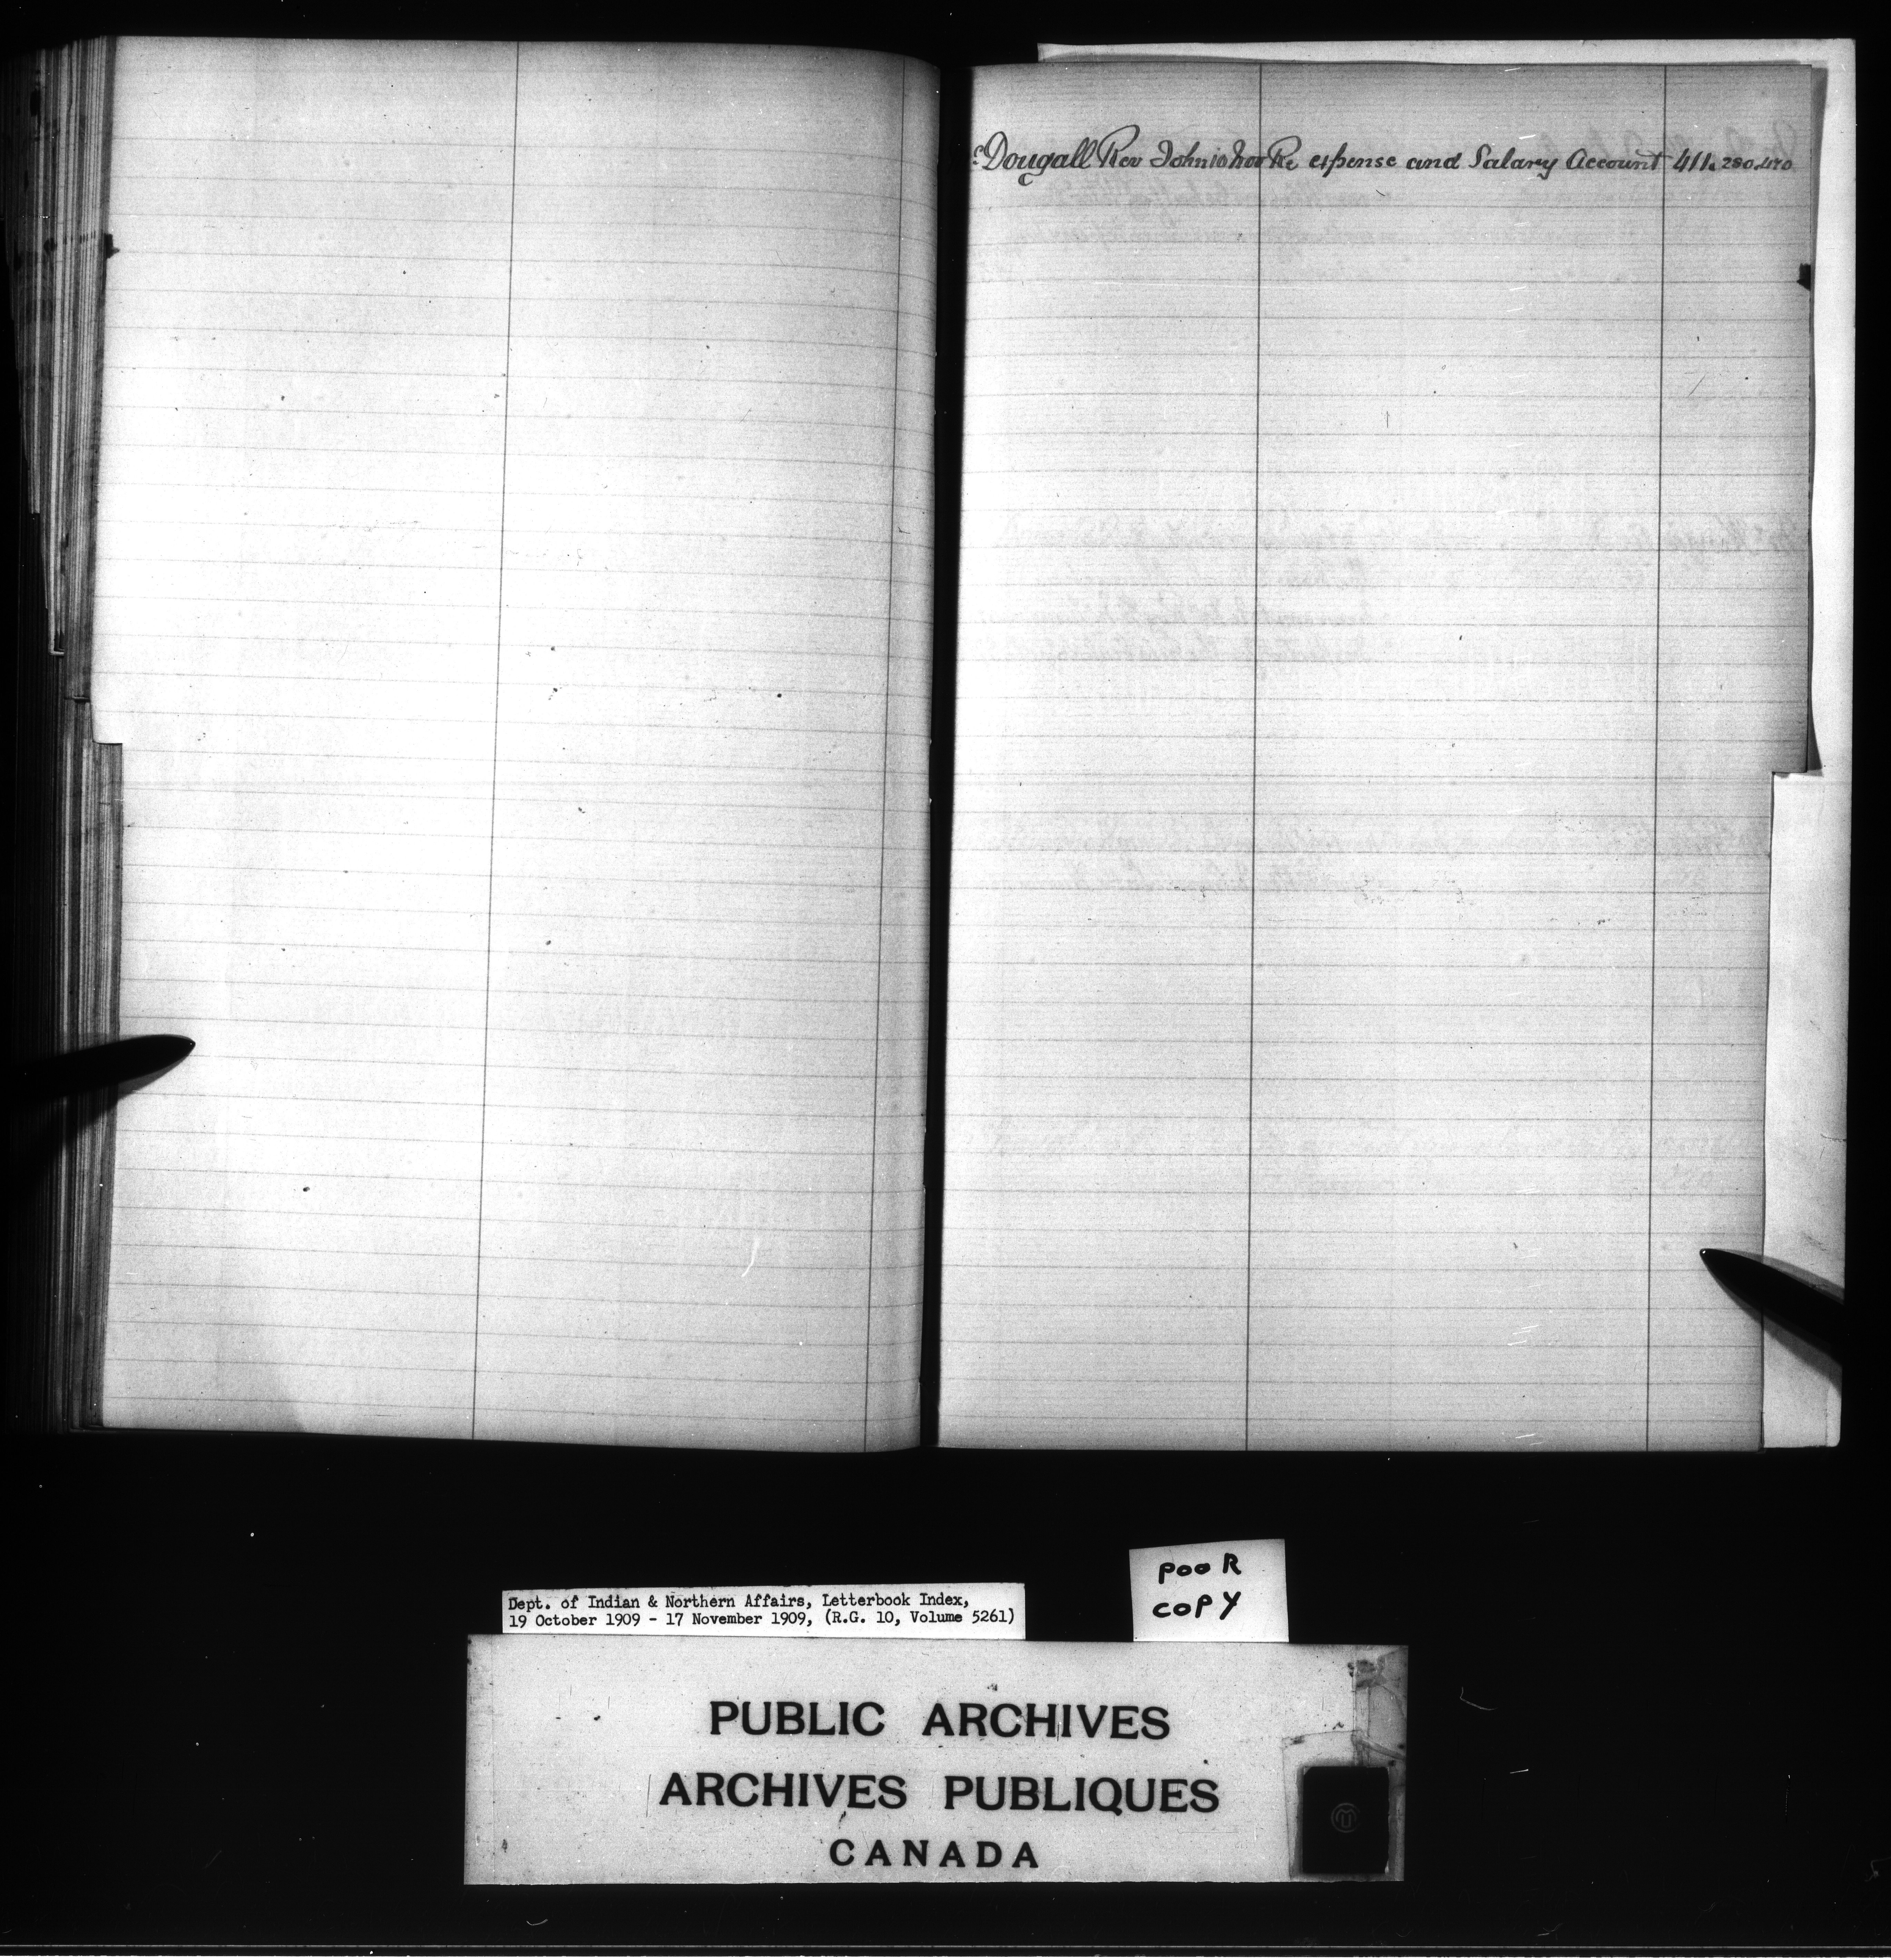 cDougall Rev John 10 Nov Re expense and Salary Account 411. 280. 470
Dept. of Indian & Northern Affairs, Letterbook Index,
19 October 1909 - 17 November 1909, (R.G. 10, Volume 5261)
POOR
COPY
PUBLIC ARCHIVES
ARCHIVES PUBLIQUES
CANADA